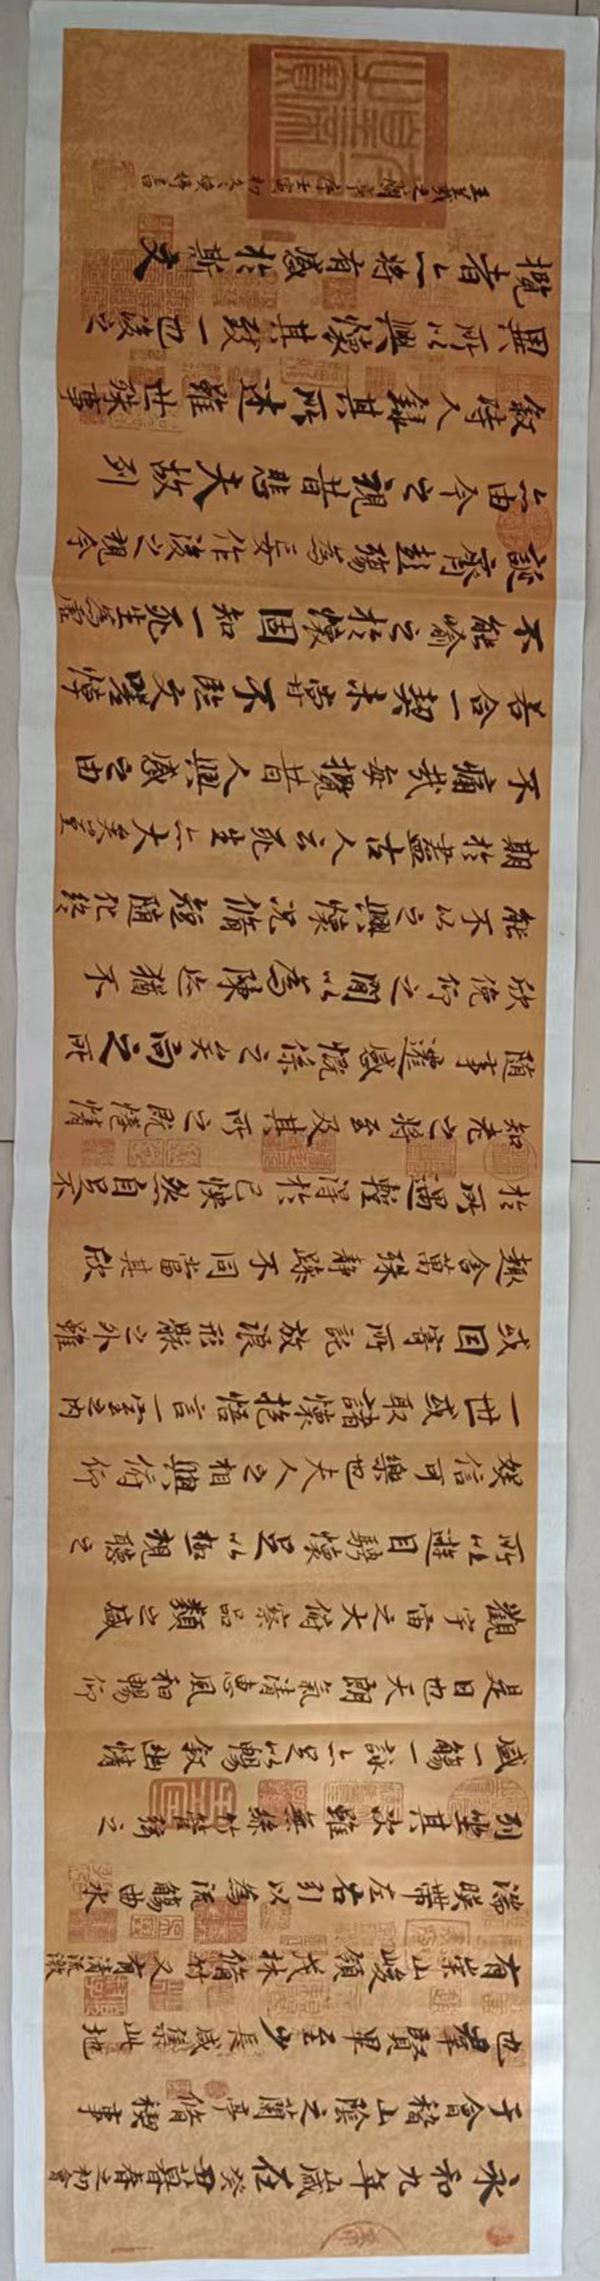 永和九年歲在癸丑暮春之初會
于會稽山陰之蘭亭脩稧事
也羣賢畢至少長咸集此地
有崇山峻領茂林脩竹又有清流激
湍暎帶左右引以為流觴曲水
列坐其次雖無絲竹管絃之
盛一觴一詠亦足以暢敘幽情
是日也天朗氣清惠風和暢仰
觀宇宙之大俯察品類之盛
所以遊目騁懷足以極視聽之
娛信可樂也夫人之相與俯仰
一世或取諸懷抱悟言一室之內
或因寄所託放浪形骸之外雖
趣舍萬殊靜躁不同當其欣
於所遇蹔得於己怏然自足不
知老之將至及其所之既惓情
隨事遷感慨係之矣向之所
欣俛仰之閒以為陳迹猶不
能不以之興懷況脩短隨化終
期於盡古人云死生亦大矣豈
不痛哉每攬昔人興感之由
若合一契未嘗不臨文嗟悼
不能喻之於懷固知一死生為虛
誕齊彭殤為妄作後之視今
亦由今之視昔悲夫故列
敘時人錄其所述雖世殊事
異所以興懷其致一也後之
攬者亦將有感於斯文
王羲之蘭亭序壬寅初冬